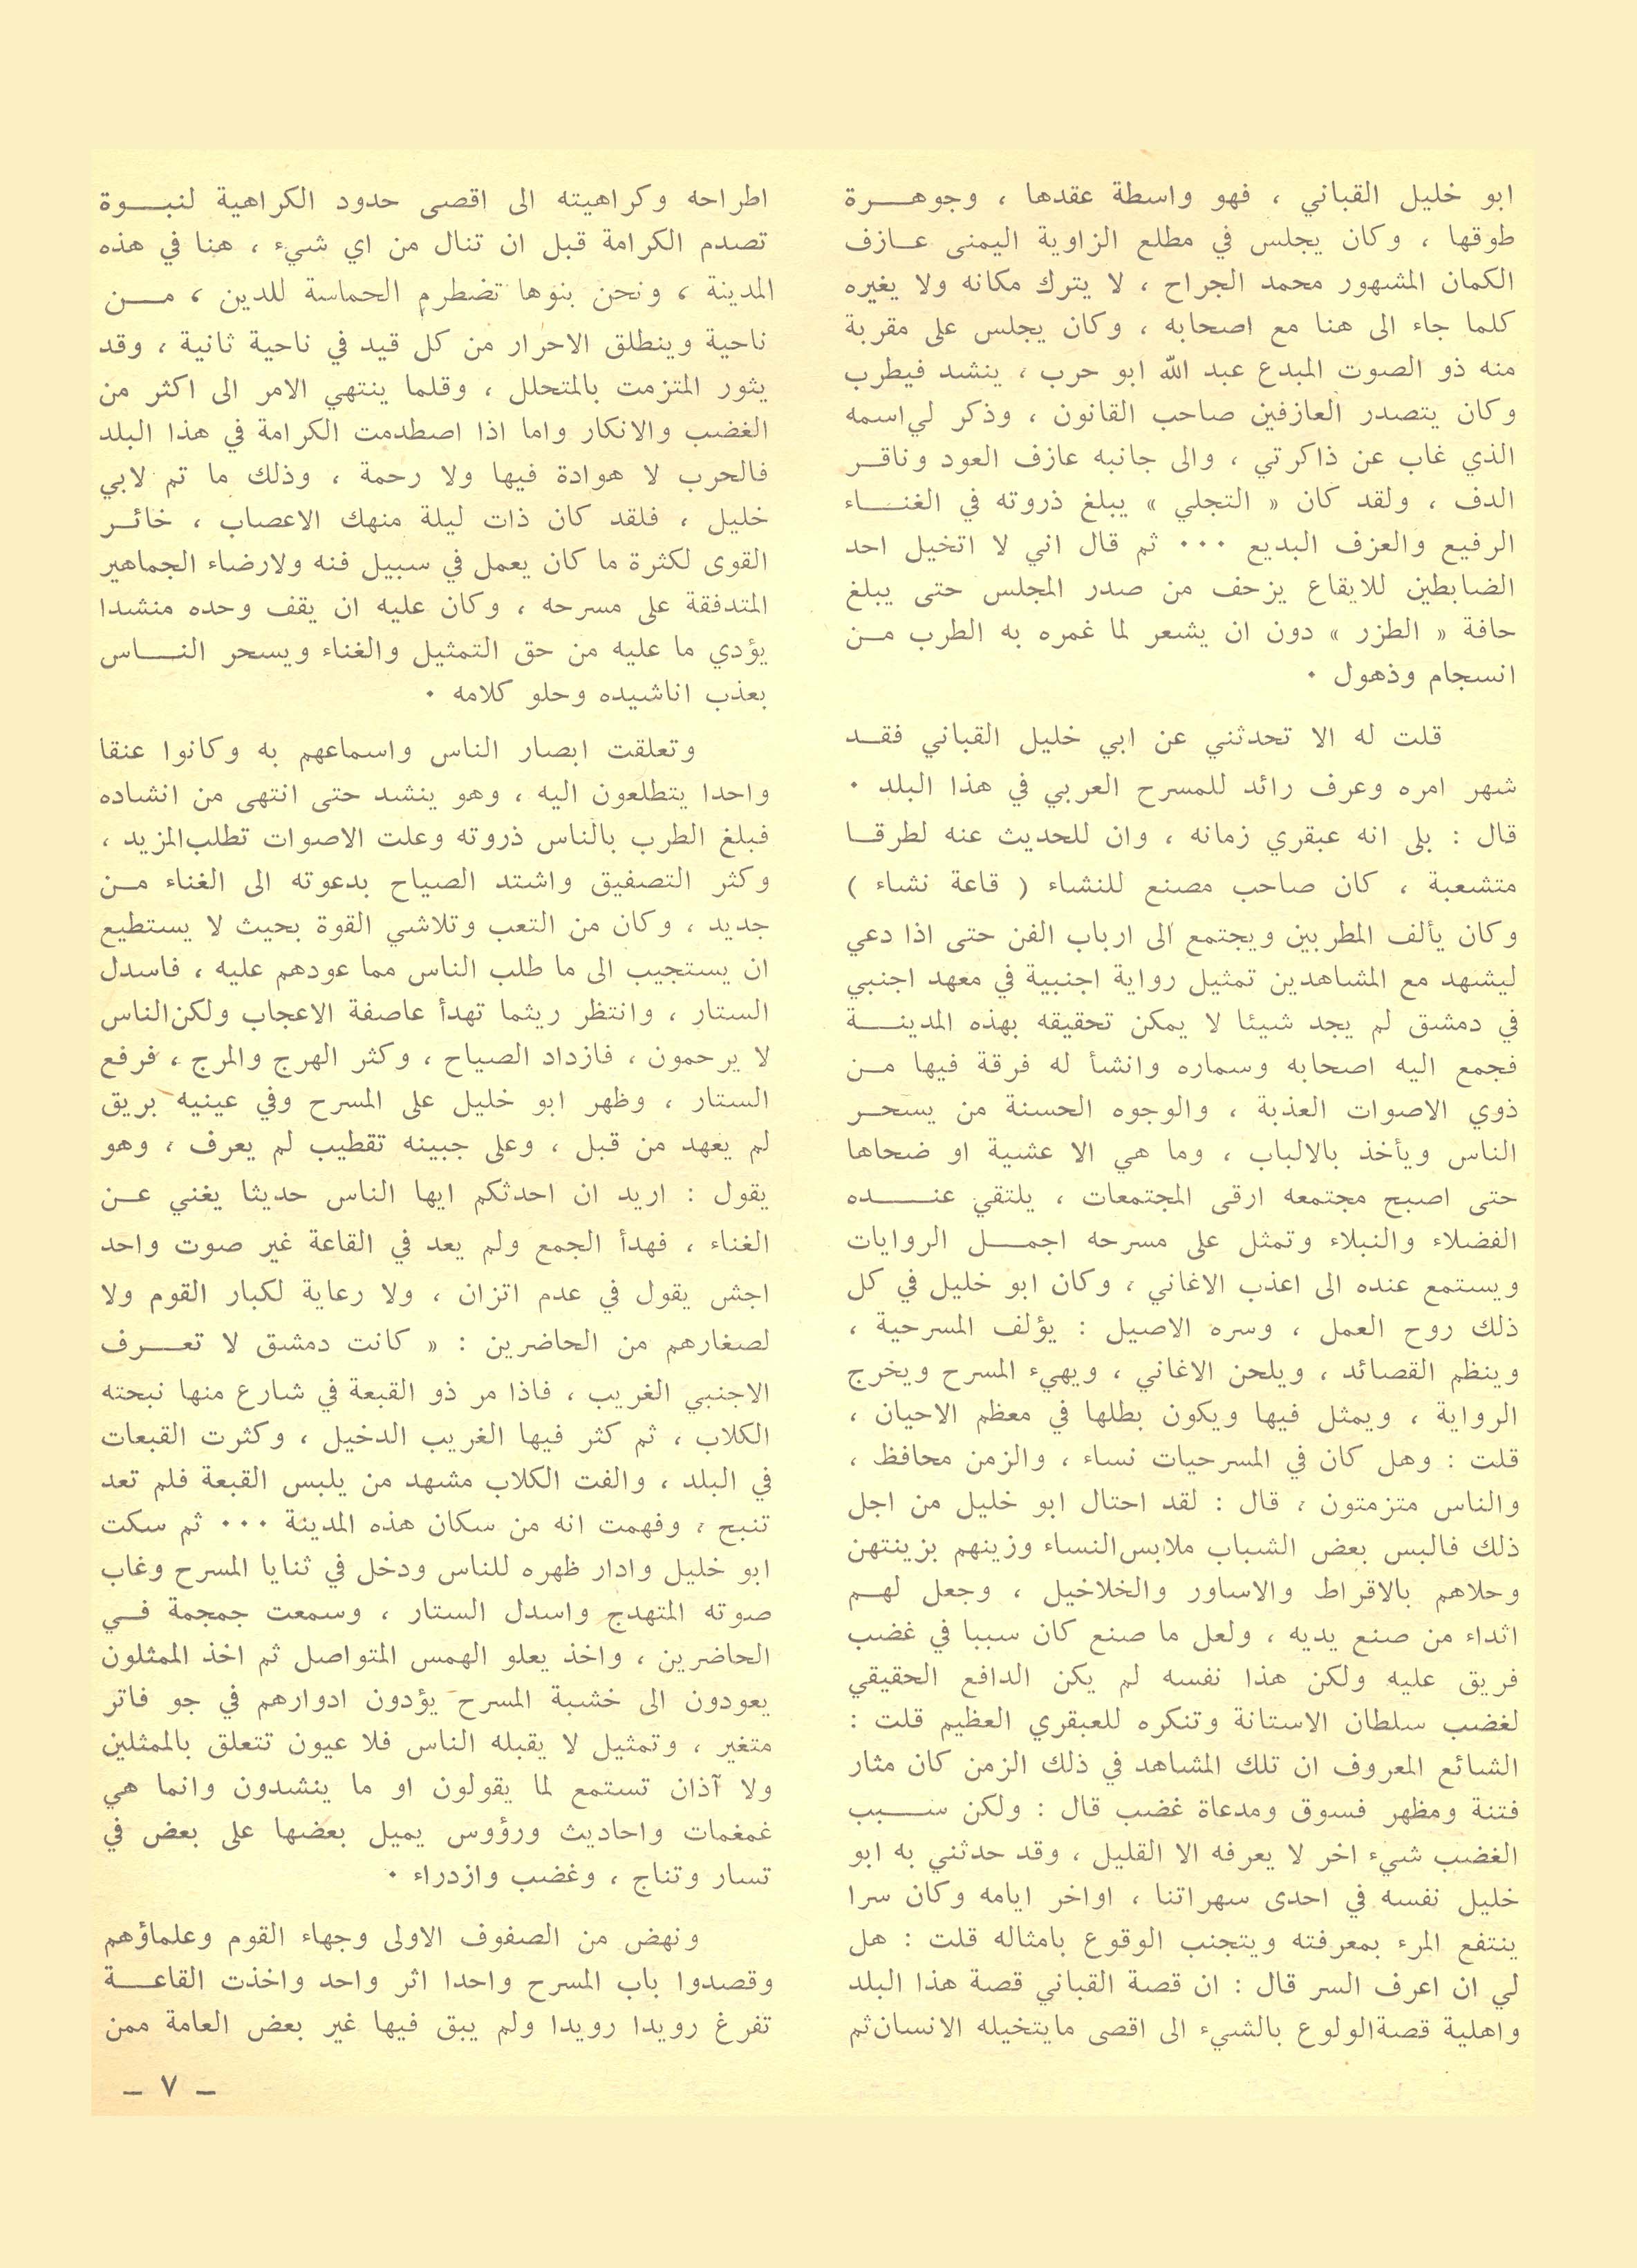 ابو خليل القباني ، فهو واسطة عقدها ، وجوهرة
طوقها ، وكان يجلس في مطلع الزاوية اليمنى عازف
الكمان المشهور محمد الجراح ، لا يترك مكانه ولا يغيره
كلما جاء الى هنا مع اصحابه ، وكان يجلس على مقربة
منه ذو الصوت المبدع عبد الله ابو حرب ، ينشد فيطرب
وكان يتصدر العازفين صاحب القانون ، وذكر لي اسمه
الذي غاب عن ذاكرتي ، والى جانبه عازف العود وناقر
الدف ، ولقد كان « التجلي » يبلغ ذروته في الغناء
الرفيع والعزف البديع ٠٠٠ ثم قال اني لا اتخيل احد
الضابطين للايقاع يزحف من صدر المجلس حتى يبلغ
حافة « الطزر » دون ان يشعر لما غمره به الطرب من
انسجام وذهول ٠
قلت له الا تحدثني عن ابي خليل القباني فقد
شهر امره وعرف رائد للمسرح العربي في هذا البلد ٠
قال : بلى انه عبقري زمانه ، وان للحديث عنه لطرقا
متشعبة ، كان صاحب مصنع للنشاء ( قاعة نشاء )
وكان يألف المطربين ويجتمع الى ارباب الفن حتى اذا دعي
ليشهد مع المشاهدين تمثيل رواية اجنبية في معهد اجنبي
في دمشق لم يجد شيئا لا يمكن تحقيقه بهذه المدينة
فجمع اليه اصحابه وسماره وانشأ له فرقة فيها من
ذوي الاصوات العذبة ، والوجوه الحسنة من يسحر
الناس ويأخذ بالالباب ، وما هي الا عشية او ضحاها
حتى اصبح مجتمعه ارقى المجتمعات ، يلتقي عنده
الفضلاء والنبلاء وتمثل على مسرحه اجمل الروايات
ويستمع عنده الى اعذب الاغاني ، وكان ابو خليل في كل
ذلك روح العمل ، وسره الاصيل : يؤلف المسرحية ،
وينظم القصائد ، ويلحن الاغاني ، ويهيء المسرح ويخرج
الرواية ، ويمثل فيها ويكون بطلها في معظم الاحيان ،
قلت : وهل كان في المسرحيات نساء ، والزمن محافظ ،
والناس متزمتون ، قال : لقد احتال ابو خليل من اجل
ذلك فالبس بعض الشباب ملابس النساء وزينهم بزينتهن
وحلاهم بالاقراط والاساور والخلاخيل ، وجعل لهم
اثداء من صنع يديه ، ولعل ما صنع كان سببا في غضب
فريق عليه ولكن هذا نفسه لم يكن الدافع الحقيقي
لغضب سلطان الاستانة وتنكره للعبقري العظيم قلت :
الشائع المعروف ان تلك المشاهد في ذلك الزمن كان مثار
فتنة ومظهر فسوق ومدعاة غضب قال : ولكن سبب
الغضب شيء اخر لا يعرفه الا القليل ، وقد حدثني به ابو
خليل نفسه في احدى سهراتنا ، اواخر ايامه وكان سرا
ينتفع المرء بمعرفته ويتجنب الوقوع بامثاله قلت : هل
لي ان اعرف السر قال : ان قصة القباني قصة هذا البلد
واهلية قصة الولوع بالشيء الى اقصى مايتخيله الانسان ثم
اطراحه وكراهيته الى اقصى حدود الكراهية لنبوة
تصدم الكرامة قبل ان تنال من اي شيء ، هنا في هذه
المدينة ، ونحن بنوها تضطرم الحماسة للدين ، من
ناحية وينطلق الاحرار من كل قيد في ناحية ثانية ، وقد
يثور المتزمت بالمتحلل ، وقلما ينتهي الامر الى اكثر من
الغضب والانكار واما اذا اصطدمت الكرامة في هذا البلد
فالحرب لا هوادة فيها ولا رحمة ، وذلك ما تم لابي
خليل ، فلقد كان ذات ليلة منهك الاعصاب ، خائر
القوى لكثرة ما كان يعمل في سبيل فنه ولارضاء الجماهير
المتدفقة على مسرحه ، وكان عليه ان يقف وحده منشدا
يؤدي ما عليه من حق التمثيل والغناء ويسحر الناس
بعذب اناشيده وحلو كلامه ٠
وتعلقت ابصار الناس واسماعهم به وكانوا عنقا
واحدا يتطلعون اليه ، وهو ينشد حتى انتهى من انشاده
فبلغ الطرب بالناس ذروته وعلت الاصوات تطلب المزيد ،
وكثر التصفيق واشتد الصياح بدعوته الى الغناء من
جديد ، وكان من التعب وتلاشي القوة بحيث لا يستطيع
ان يستجيب الى ما طلب الناس مما عودهم عليه ، فاسدل
الستار ، وانتظر ريثما تهدأ عاصفة الاعجاب ولكن الناس
لا يرحمون ، فازداد الصياح ، وكثر الهرج والمرج ، فرفع
الستار ، وظهر ابو خليل على المسرح وفي عينيه بريق
لم يعهد من قبل ، وعلى جبينه تقطيب لم يعرف ، وهو
يقول : اريد ان احدثكم ايها الناس حديثا يغني عن
الغناء ، فهدأ الجمع ولم يعد في القاعة غير صوت واحد
اجش يقول في عدم اتزان ، ولا رعاية لكبار القوم ولا
لصغارهم من الحاضرين : « كانت دمشق لا تعرف
الاجنبي الغريب ، فاذا مر ذو القبعة في شارع منها نبحته
الكلاب ، ثم كثر فيها الغريب الدخيل ، وكثرت القبعات
في البلد ، والفت الكلاب مشهد من يلبس القبعة فلم تعد
تنبح ، وفهمت انه من سكان هذه المدينة ٠٠٠ ثم سكت
ابو خليل وادار ظهره للناس ودخل في ثنايا المسرح وغاب
صوته المتهدج واسدل الستار ، وسمعت جمجمة في
الحاضرين ، واخذ يعلو الهمس المتواصل ثم اخذ الممثلون
يعودون الى خشبة المسرح يؤدون ادوارهم في جو فاتر
متغير ، وتمثيل لا يقبله الناس فلا عيون تتعلق بالممثلين
ولا آذان تستمع لما يقولون او ما ينشدون وانما هي
غمغمات واحاديث ورؤوس يميل بعضها على بعض في
تسار وتناج ، وغضب وازدراء ٠
ونهض من الصفوف الاولى وجهاء القوم وعلماؤهم
وقصدوا باب المسرح واحدا اثر واحد واخذت القاعة
تفرغ رويدا رويدا ولم يبق فيها غير بعض العامة ممن
– ٧ –